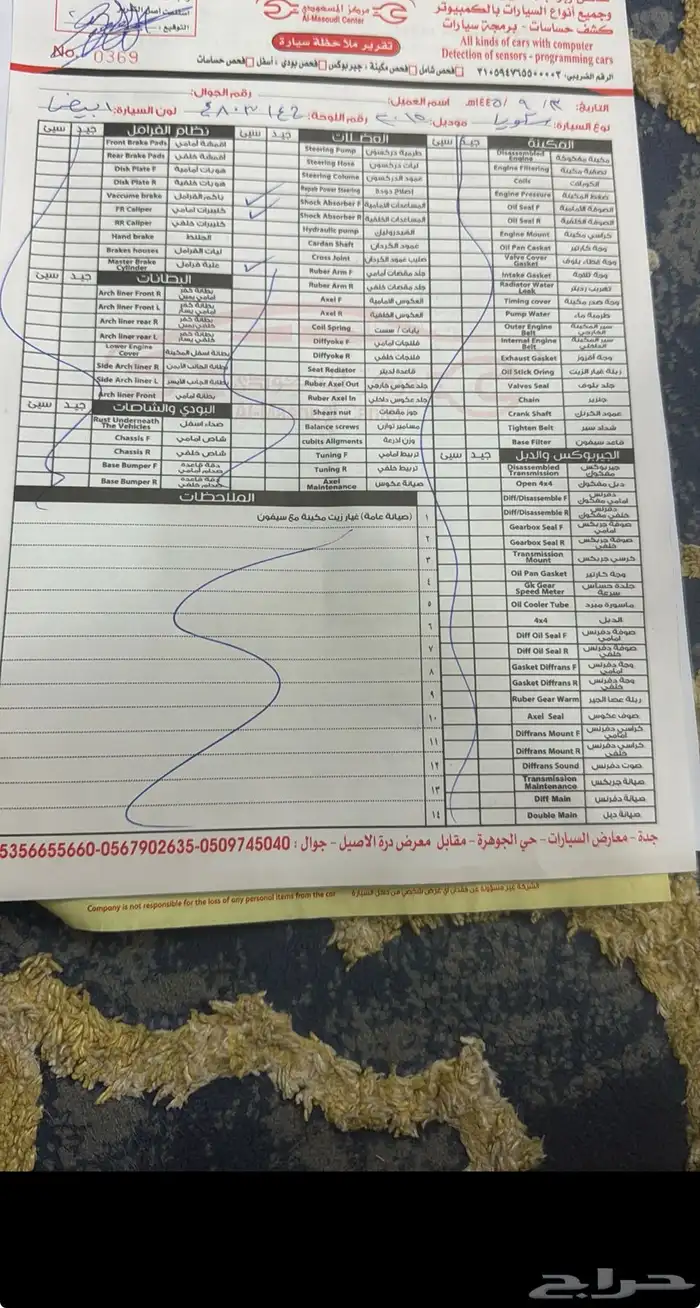 مركز المسعودي
Al-Masoudi Center
وجميع أنواع السيارات بالكمبيوتر
كشف حساسات - برمجة سيارات
All kinds of cars with computer
Detection of sensors - programming cars
تقرير ملاحظة سيارة
No. 0369
فحص شامل فحص مكينة، جيربوكس فحص بودي، أسفل فحص حساسات
التاريخ: ١٤٤٥هـ اسم العميل: رقم الجوال:
نوع السيارة: موديل: ٢٠١٥ رقم اللوحة: لون السيارة: ابيض
المكينة جيد سيئ
مكينة مفكوكة Disassembled Engine
تصفية مكينة Engine Filtering
الكويلات Coils
ضغط المكينة Engine Pressure
الصوفة الأمامية Oil Seal F
الصوفة الخلفية Oil Seal R
كراسي مكينة Engine Mount
وجة كارتير Oil Pan Casket
وجة غطاء بلوف Valve Cover Gasket
وجة ثلاجة Intake Gasket
تهريب رديتر Radiator Water Leak
وجة صدر مكينة Timing cover
طرمبة ماء Pump Water
سير المكينة الخارجي Outer Engine Belt
سير المكينة الداخلي Internal Engine Belt
وجة أقزوز Exhaust Gasket
ربلة عيار الزيت Oil Stick Oring
جلد بلوف Valves Seal
جنزير Chain
عمود الكرنك Crank Shaft
شداد سير Tighten Belt
قاعدة سيفون Base Filter
الجيربوكس والدبل جيد سيئ
جيربوكس مفكوك Disassembled Transmission
دبل مفكوك Open 4x4
دفرنس أمامي مفكوك Diff/Disassemble F
دفرنس خلفي مفكوك Diff/Disassemble R
صوفة جربكس أمامي Gearbox Seal F
صوفة جربكس خلفي Gearbox Seal R
كرسي جربكس Transmission Mount
وجة كارتير Oil Pan Gasket
جلدة حساس سرعة Gk Gear Speed Meter
ماسورة مبرد Oil Cooler Tube
الدبل 4x4
صوفة دفرنس أمامي Diff Oil Seal F
صوفة دفرنس خلفي Diff Oil Seal R
وجة دفرنس أمامي Gasket Diffrans F
وجة دفرنس خلفي Gasket Diffrans R
ربلة عصا الجير Ruber Gear Warm
صوف عكوس Axel Seal
كراسي دفرنس أمامي Diffrans Mount F
كراسي دفرنس خلفي Diffrans Mount R
صوت دفرنس Diffrans Sound
صيانة جربكس Transmission Maintenance
صيانة دفرنس Diff Main
صيانة دبل Double Main
العضلات جيد سيئ
طرمبة دركسون Steering Pump
ليات دركسون Steering Hose
عمود الدركسون Steering Column
Repair Power Steering
المساعدات الأمامية Shock Absorber F
المساعدات الخلفية Shock Absorber R
الهيدروليك Hydraulic pump
عمود الكردان Cardan Shaft
صليب عمود الكردان Cross Joint
جلد مقصات أمامي Ruber Arm F
جلد مقصات خلفي Ruber Arm R
العكوس الأمامية Axel F
العكوس الخلفية Axel R
يايات / سست Coil Spring
فلنجات أمامي Diffyoke F
فلنجات خلفي Diffyoke R
قاعدة لديتر Seat Rediator
جلد عكوس خارجي Ruber Axel Out
جلد عكوس داخلي Ruber Axel In
جوز مقصات Shears nut
مسامير توازن Balance screws
وزن أذرعة cubits Aligments
تربيط أمامي Tuning F
تربيط خلفي Tuning R
صيانة عكوس Axel Maintenance
نظام الفرامل جيد سيئ
أقمشة أمامي Front Brake Pads
أقمشة خلفي Rear Brake Pads
هوبات أمامية Disk Plate F
هوبات خلفية Disk Plate R
باكم الفرامل Vaccume brake
كليبرات أمامي FR Caliper
كليبرات خلفي RR Caliper
الجلنط Hand brake
ليات الفرامل Brakes houses
علبة فرامل Master Brake Cylinder
البطانات جيد سيئ
بطانة كفر أمامي يمين Arch liner Front R
بطانة كفر أمامي يسار Arch liner Front L
بطانة كفر خلفي يمين Arch liner rear R
بطانة كفر خلفي يسار Arch liner rear L
بطانة أسفل المكينة Lower Engine Cover
بطانة الجانب الأيمن Side Arch liner R
بطانة الجانب الأيسر Side Arch liner L
بطانة أمامي Arch liner Front
البودي والشاصات جيد سيئ
صداء أسفل Rust Underneath The Vehicles
شاص أمامي Chassis F
شاص خلفي Chassis R
دقة قاعدة صدام أمامي Base Bumper F
دقة قاعدة صدام خلفي Base Bumper R
الملاحظات
١ (صيانة عامة) غيار زيت مكينة مع سيفون
٢
٣
٤
٥
٦
٧
٨
٩
١٠
١١
١٢
١٣
١٤
جدة - معارض السيارات - حي الجوهرة - مقابل معرض درة الاصيل - جوال : 0509745040-0567902635-5356655660
Company is not responsible for the loss of any personal items from the car
حراج